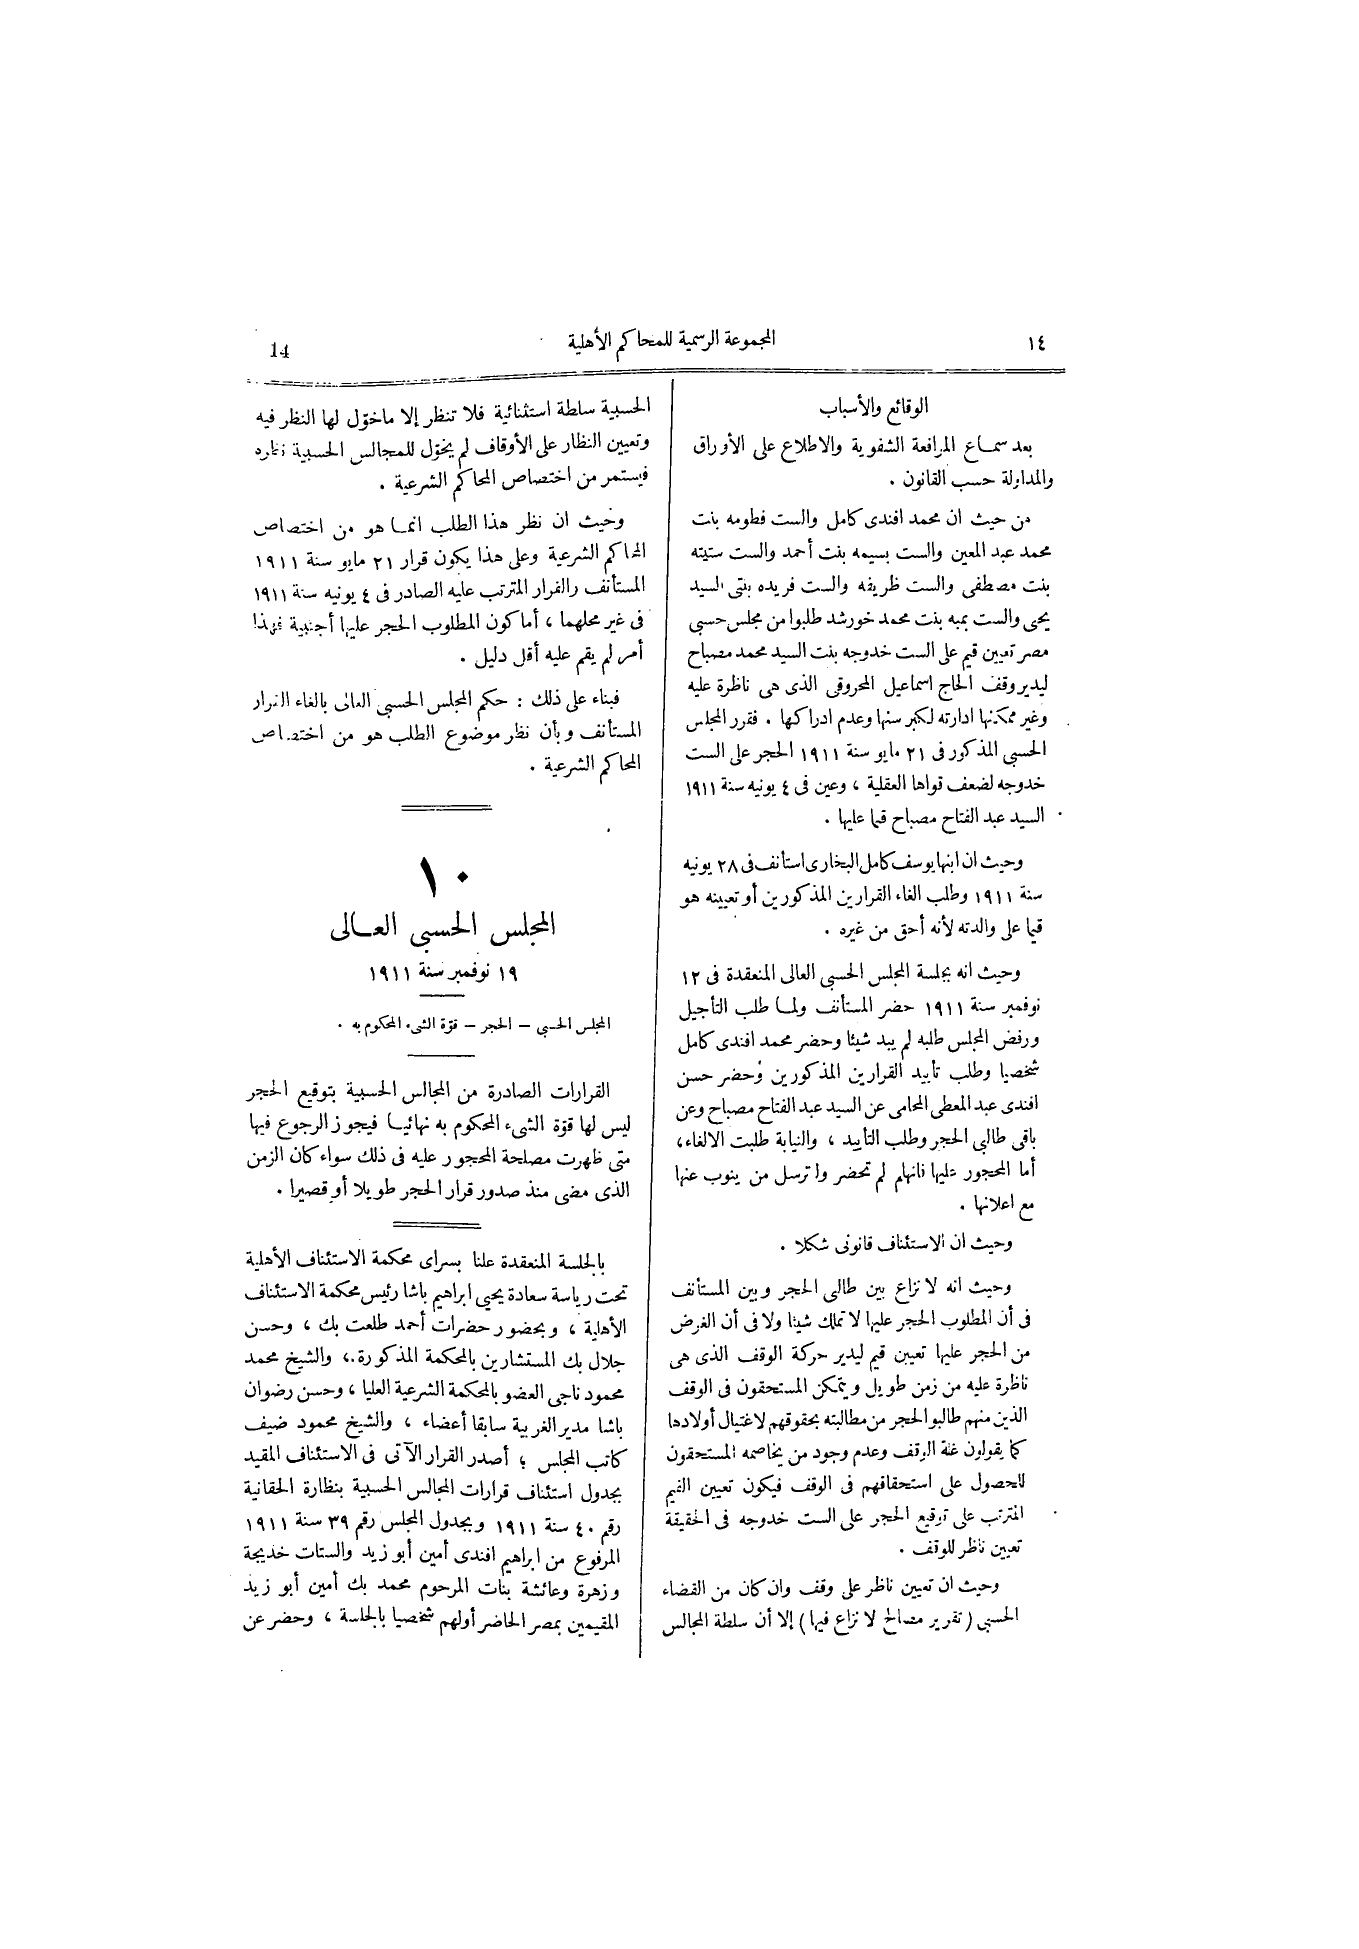 ١٤
المجموعة الرسمية للمحاكم الأهلية
14
الوقائع والأسباب
بعد سماع المرافعة الشفوية والاطلاع على الأوراق
والمداولة حسب القانون .
من حيث ان محمد افندى كامل والست فطومه بنت
محمد عبد المعين والست بسيمه بنت أحمد والست ستيته
بنت مصطفى والست ظريفه والست فريده بنتى السيد
يحيى والست بمبه بنت محمد خورشد طلبوا من مجلس حسبى
مصر تعيين قيم على الست خدوجه بنت السيد محمد مصباح
ليدير وقف الحاج اسماعيل المحروقى الذى هى ناظرة عليه
وغير ممكنها ادارته لكبر سنها وعدم ادراكها . فقرر المجلس
الحسبى المذكور فى ٢١ مايو سنة ١٩١١ الحجر على الست
خدوجه لضعف قواها العقلية ، وعين فى ٤ يونيه سنة ١٩١١
السيد عبد الفتاح مصباح قيما عليها .
وحيث ان ابنها يوسف كامل البخارى استأنف فى ٢٨ يونيه
سنة ١٩١١ وطلب الغاء القرارين المذكورين أو تعيينه هو
قيما على والدته لأنه أحق من غيره .
وحيث انه بجلسة المجلس الحسبى العالى المنعقدة فى ١٢
نوفمبر سنة ١٩١١ حضر المستأنف ولما طلب التأجيل
ورفض المجلس طلبه لم يبد شيئا وحضر محمد افندى كامل
شخصيا وطلب تأييد القرارين المذكورين وحضر حسن
افندى عبد المعطى المحامى عن السيد عبد الفتاح مصباح وعن
باقى طالبى الحجر وطلب التأييد ، والنيابة طلبت الالغاء،
أما المحجور عليها فانها لم تحضر ولا ترسل من ينوب عنها
مع اعلانها .
وحيث ان الاستئناف قانونى شكلا .
وحيث انه لا نزاع بين طالبى الحجر وبين المستأنف
فى أن المطلوب الحجر عليها لا تملك شيئا ولا فى أن الغرض
من الحجر عليها تعيين قيم ليدير حركة الوقف الذى هى
ناظرة عليه من زمن طويل ويتمكن المستحقون فى الوقف
الذين منهم طالبو الحجر من مطالبته بحقوقهم لاغتيال أولادها
كما يقولون غلة الوقف وعدم وجود من يخاصمه المستحقون
للحصول على استحقاقهم فى الوقف فيكون تعيين القيم
المترتب على توقيع الحجر على الست خدوجه فى الحقيقة
تعيين ناظر للوقف .
وحيث ان تعيين ناظر على وقف وان كان من القضاء
الحسبى (تقرير مصالح لا نزاع فيها) إلا أن سلطة المجالس
الحسبية سلطة استثنائية فلا تنظر إلا ما خوّل لها النظر فيه
وتعيين النظار على الأوقاف لم يخوّل للمجالس الحسبية نظره
فيستمر من اختصاص المحاكم الشرعية .
وحيث ان نظر هذا الطلب انما هو من اختصاص
المحاكم الشرعية وعلى هذا يكون قرار ٢١ مايو سنة ١٩١١
المستأنف والقرار المترتب عليه الصادر فى ٤ يونيه سنة ١٩١١
فى غير محلهما ، أما كون المطلوب الحجر عليها أجنبية فهذا
أمر لم يقم عليه أقل دليل .
فبناء على ذلك : حكم المجلس الحسبى العالى بالغاء القرار
المستأنف وبأن نظر موضوع الطلب هو من اختصاص
المحاكم الشرعية .
١٠
المجلس الحسبى العالى
١٩ نوفمبر سنة ١٩١١
المجلس الحسبى – الحجر – قوّة الشىء المحكوم به .
القرارات الصادرة من المجالس الحسبية بتوقيع الحجر
ليس لها قوّة الشىء المحكوم به نهائيا فيجوز الرجوع فيها
متى ظهرت مصلحة المحجور عليه فى ذلك سواء كان الزمن
الذى مضى منذ صدور قرار الحجر طويلا أو قصيرا .
بالجلسة المنعقدة علنا بسراى محكمة الاستئناف الأهلية
تحت رياسة سعادة يحيى ابراهيم باشا رئيس محكمة الاستئناف
الأهلية ، وبحضور حضرات أحمد طلعت بك ، وحسن
جلال بك المستشارين بالمحكمة المذكورة ، والشيخ محمد
محمود ناجى العضو بالمحكمة الشرعية العليا ، وحسن رضوان
باشا مدير الغربية سابقا أعضاء ، والشيخ محمود ضيف
كاتب المجلس ؛ أصدر القرار الآتى فى الاستئناف المقيد
بجدول استئناف قرارات المجالس الحسبية بنظارة الحقانية
رقم ٤٠ سنة ١٩١١ وبجدول المجلس رقم ٣٩ سنة ١٩١١
المرفوع من ابراهيم افندى أمين أبو زيد والستات خديجة
وزهرة وعائشة بنات المرحوم محمد بك أمين أبو زيد
المقيمين بمصر الحاضر أولهم شخصيا بالجلسة ، وحضر عن